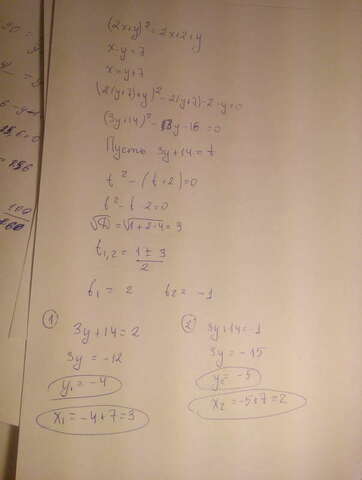 (2x+y)² = 2x+2+y
x-y=7
x=y+7
(2(y+7)+y)²-2(y+7)-2-y=0
(3y+14)²-3y-16=0
Пусть 3y+14=t
t²-(t+2)=0
t²-t-2=0
√D=√1+2·4=3
t₁,₂=(1±3)/2
t₁=2 t₂=-1
① 3y+14=2
3y=-12
y₁=-4
x₁=-4+7=3
② 3y+14=-1
3y=-15
y₂=-5
x₂=-5+7=2